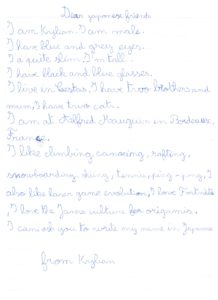 Dear japonese friend
I am Kylian. I am male.
I have blue and grey eyes.
I a quite slim. I'm tall.
I have black and blue glasses.
I live in Cestas. I have two brothers and
mum, I have two cats.
I am at Alfred Mauguin in Bordeaux,
France.
I like climbing, canoeing, rafting,
snowboarding, skiing, tennis, ping-pong, I
also like laser game evolution, I love Fortnite
, I love the Jame culture for origamis.
I can ask you to write my name in Japanese
from Kylian